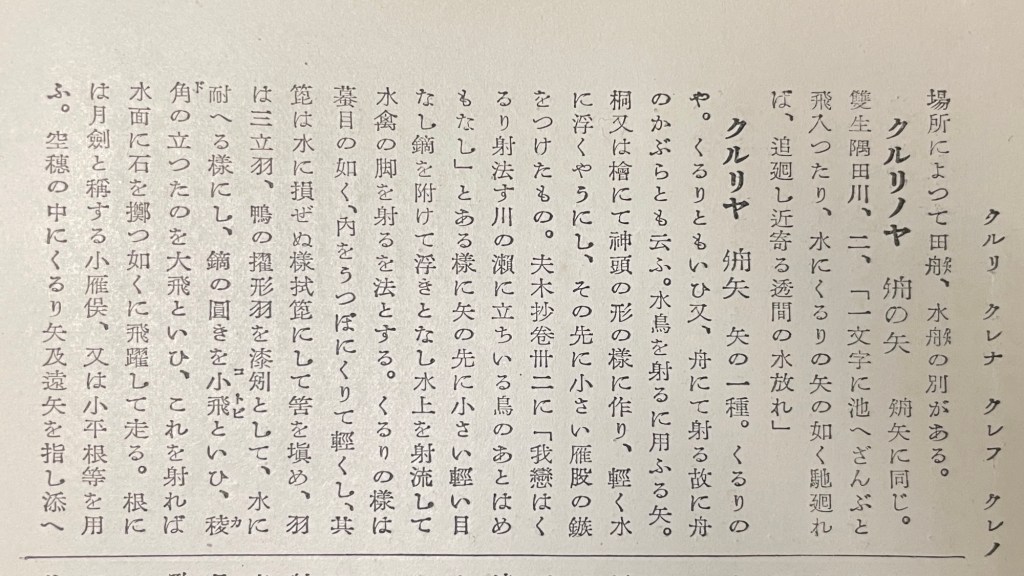 クルリ クレナ クレフ クレノ
場所によつて田、水の別がある。
クルリノヤ の矢 矢に同じ。
雙生隅田川、二、「一文字に池へざんぶと
飛入つたり、水にくるりの矢の如く馳廻れ
ば、追廻し近寄る透間の水放れ」
クルリヤ 矢 矢の一種。くるりの
や。くるりともいひ又、舟にて射る故に舟
のかぶらとも云ふ。水鳥を射るに用ふる矢。
桐又は檜にて神頭の形の樣に作り、輕く水
に浮くやうにし、その先に小さい雁股の鏃
をつけたもの。夫木抄卷卅二に「我戀はく
るり射法す川の瀨に立ちいる鳥のあとはめ
もなし」とある樣に矢の先に小さい輕い目
なし鏑を附けて浮きとなし水上を射流して
水禽の脚を射るを法とする。くるりの樣は
蟇目の如く、內をうつぼにくりて輕くし、其
箆は水に損ぜぬ樣拭箆にして筈を塡め、羽
は三立羽、鴨の擢形羽を漆矧として、水に
耐へる樣にし、鏑の圓きを小飛コトヒといひ、稜カ
角ドの立つたのを大飛といひ、これを射れば
水面に石を擲つ如くに飛躍して走る。根に
は月劍と稱する小雁俣、又は小平根等を用
ふ。空穗の中にくるり矢及遠矢を指し添へ